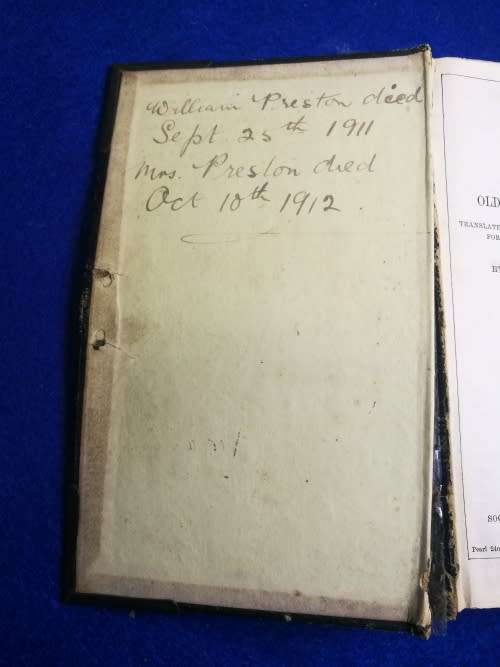 William Preston died
Sept 25th 1911
Mrs. Preston died
Oct 10th 1912.
OLD
TRANSLATE
FOR
B
SOC
Pearl 24mo